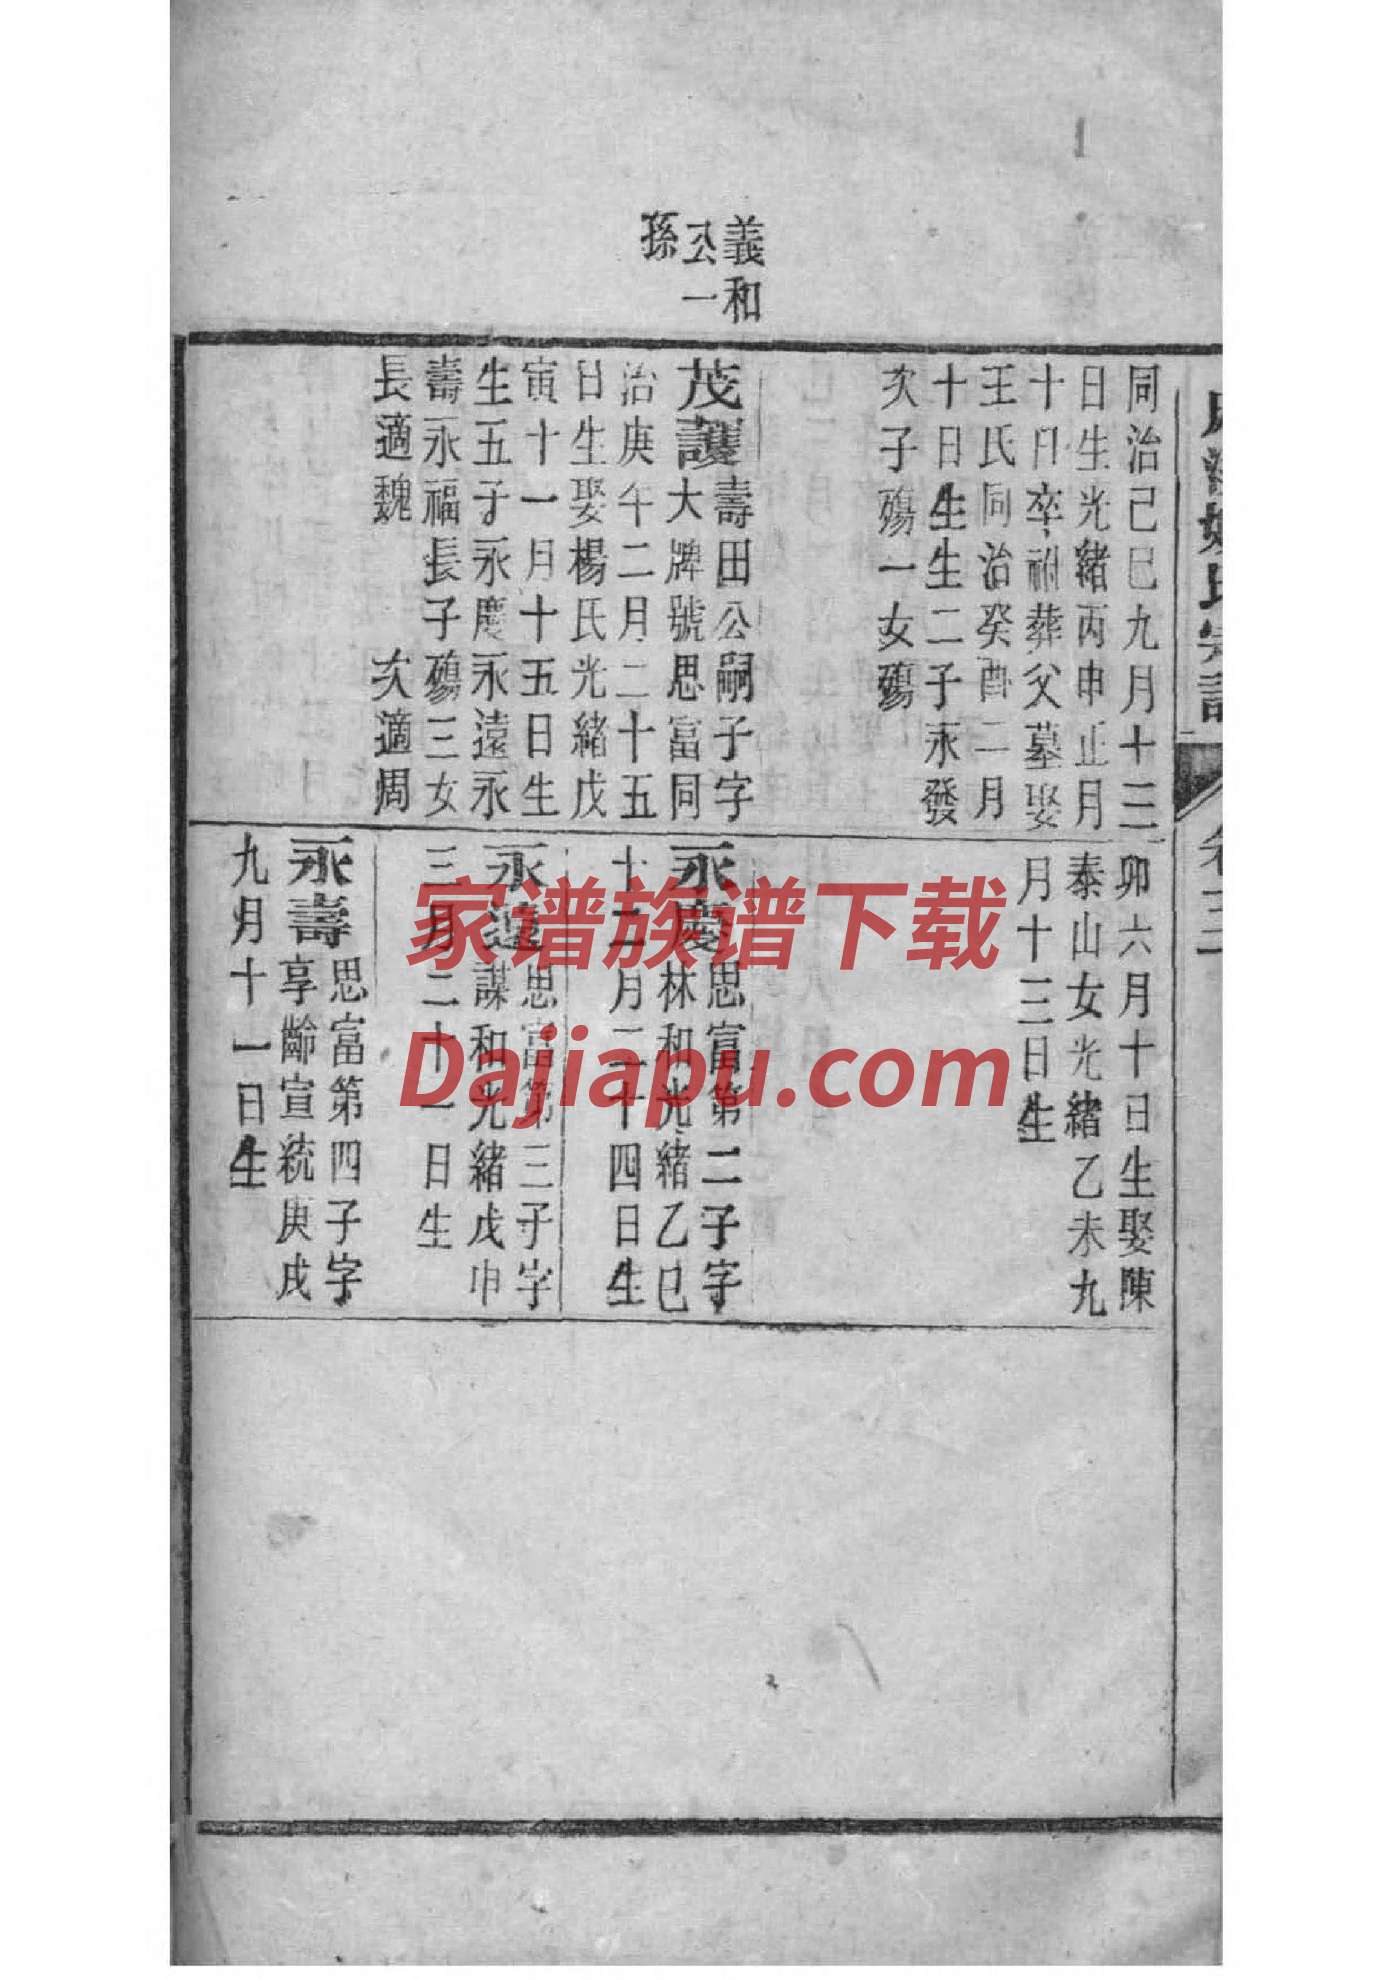 義和
公一
孫
同治己巳九月十三
日生光緒丙申正月
十日卒祔葬父墓娶
王氏同治癸酉二月
十日生生二子永發
次子殤一女殤
茂護壽田公嗣子字
大牌號思富同
治庚午二月二十五
日生娶楊氏光緒戊
寅十一月十五日生
生五子永慶永遠永
壽永福長子殤三女
長適魏 次適周
卯六月十日生娶陳
泰山女光緒乙未九
月十三日生
永慶思富第二子字
林和光緒乙巳
十二月二十四日生
永遠思富第三子字
謀和光緒戊申
三月二十一日生
永壽思富第四子字
享齡宣統庚戌
九月十一日生
卷三
家谱族谱下载
Dajiapu.com